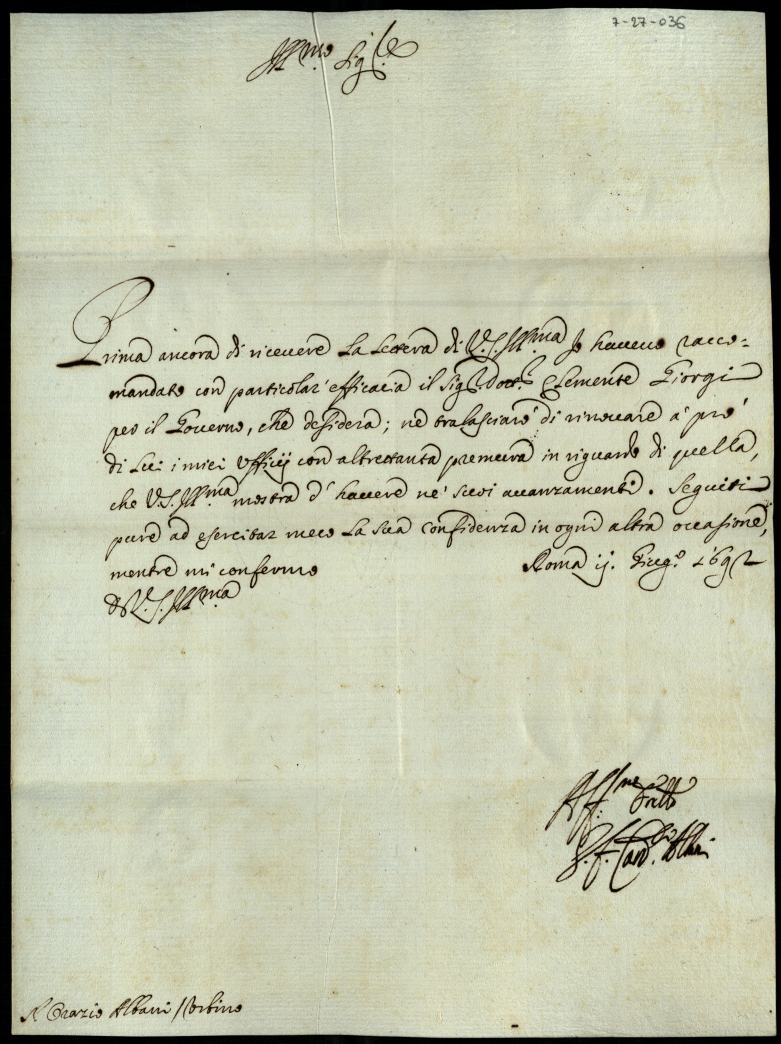 7-27-036
Ill.mo Sig.re
Prima ancora di riceuere la lettera di V.S. Ill.ma Io haueuo racco=
mandato con particolar' efficacia il Sig.r Dott.r Clemente Giorgi
per il Gouerno, che desidera; nè tralasciarò di rinouare à prò
di Lui i miei Ufficij con altrettanta premura in riguardo di quella,
che V.S. Ill.ma mostra d' hauere ne' suoi auanzamenti. Seguiti
pure ad esercitar meco la sua confidenza in ogni altra occasione,
mentre mi confermo Roma ij. Giug.o 1692
Di V.S. Ill.ma
Aff.mo Frallo
G. F. Card. Albani
S.r Orazio Albani / Vrbino